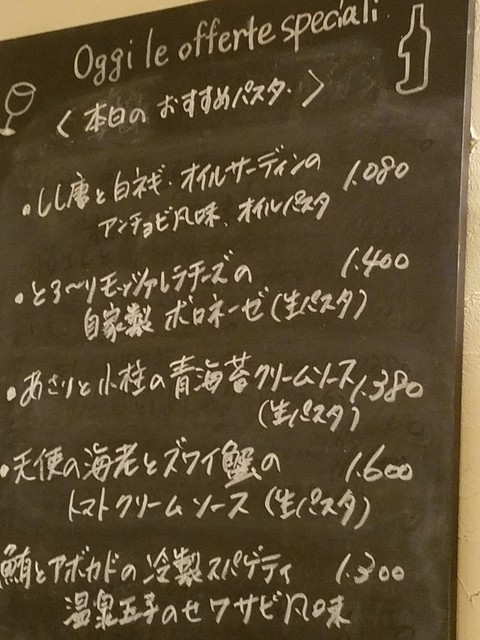 Oggi le offerte speciali
〈 本日の おすすめパスタ. 〉
・しし唐と白ネギ、オイルサーディンの 1.080
アンチョビ風味、オイルパスタ
・とろ〜りモッツァレラチーズの 1.400
自家製 ボロネーゼ (生パスタ)
・あさりと小柱の青海苔クリームソース 1.380
(生パスタ)
・天使の海老とズワイ蟹の 1.600
トマトクリームソース (生パスタ)
鮪とアボカドの冷製スパゲティ 1.300
温泉玉子のせワサビ風味